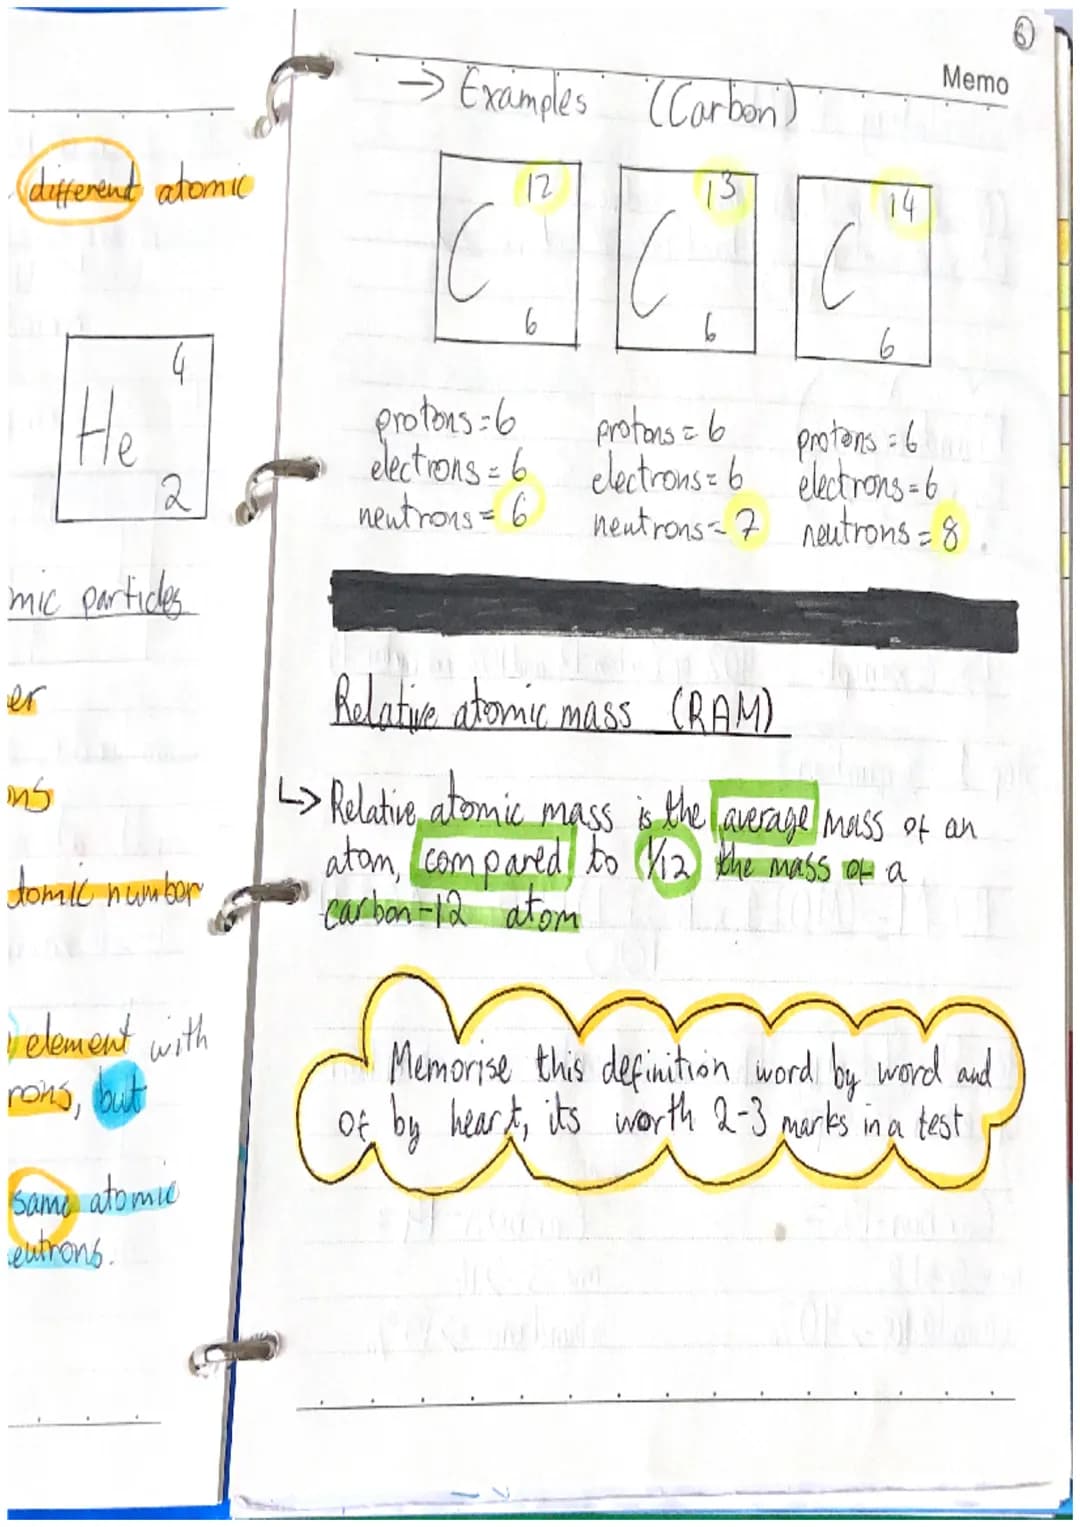 different atomic
4
He
2
mic particles
er
ons
tomic number
element with
rons, but
same atomic
eutrons.
6
Memo
→ Examples (Carbon)
12 13 14
C C C
6 6 6
protons = 6 protons = 6 protons = 6
electrons = 6 electrons = 6 electrons = 6
neutrons = 6 neutrons = 7 neutrons = 8.
Relative atomic mass (RAM)
↳ Relative atomic mass is the average mass of an
atom, compared to 1/12 the mass of a
carbon-12 atom
Memorise this definition word by word and
of by heart, its worth 2-3 marks in a test